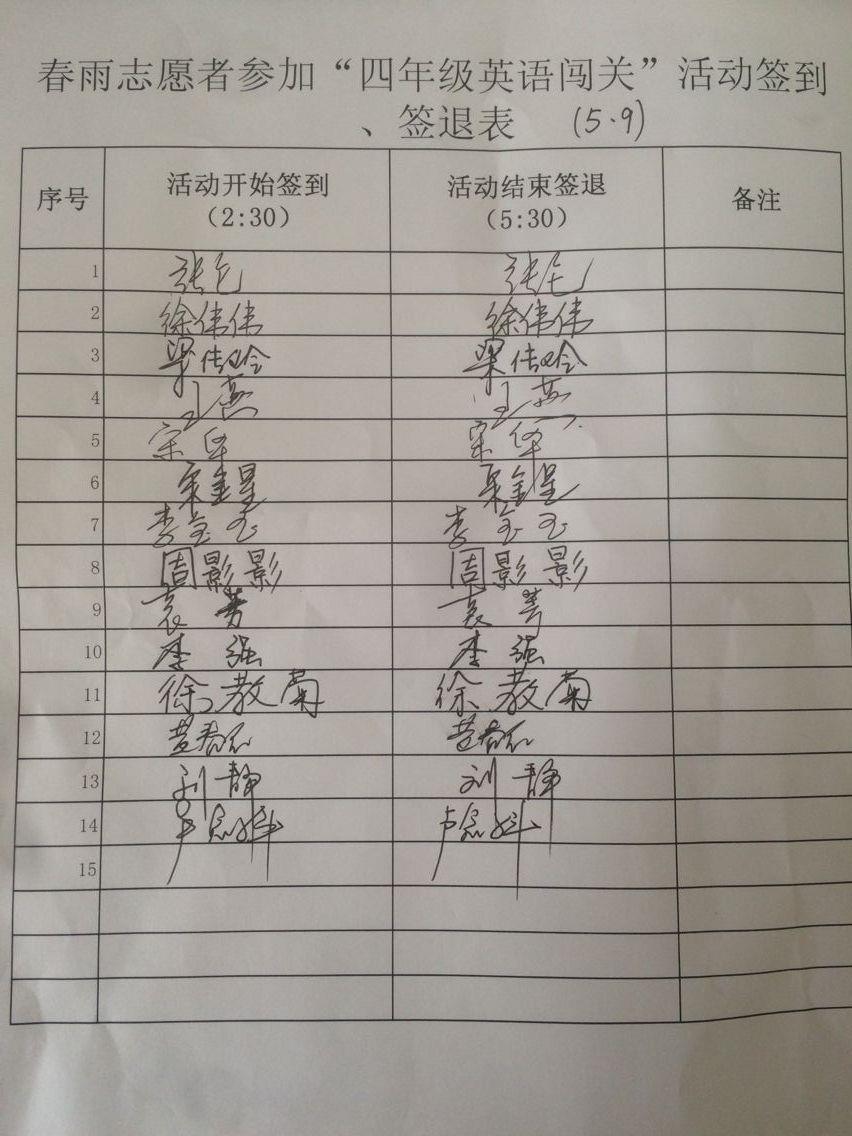 春雨志愿者参加“四年级英语闯关”活动签到
、签退表 (5·9)
序号 活动开始签到 (2:30) 活动结束签退 (5:30) 备注
1 张 张
2 徐伟伟 徐伟伟
3 梁 梁
4 王燕 王燕
5 宋军 宋军
6 宋金星 宋金星
7 李玉 李玉
8 周影影 周影影
9 袁芳 袁芳
10 李强 李强
11 徐教菊 徐教菊
12 黄春 黄春
13 刘静 刘静
14 卢 卢
15